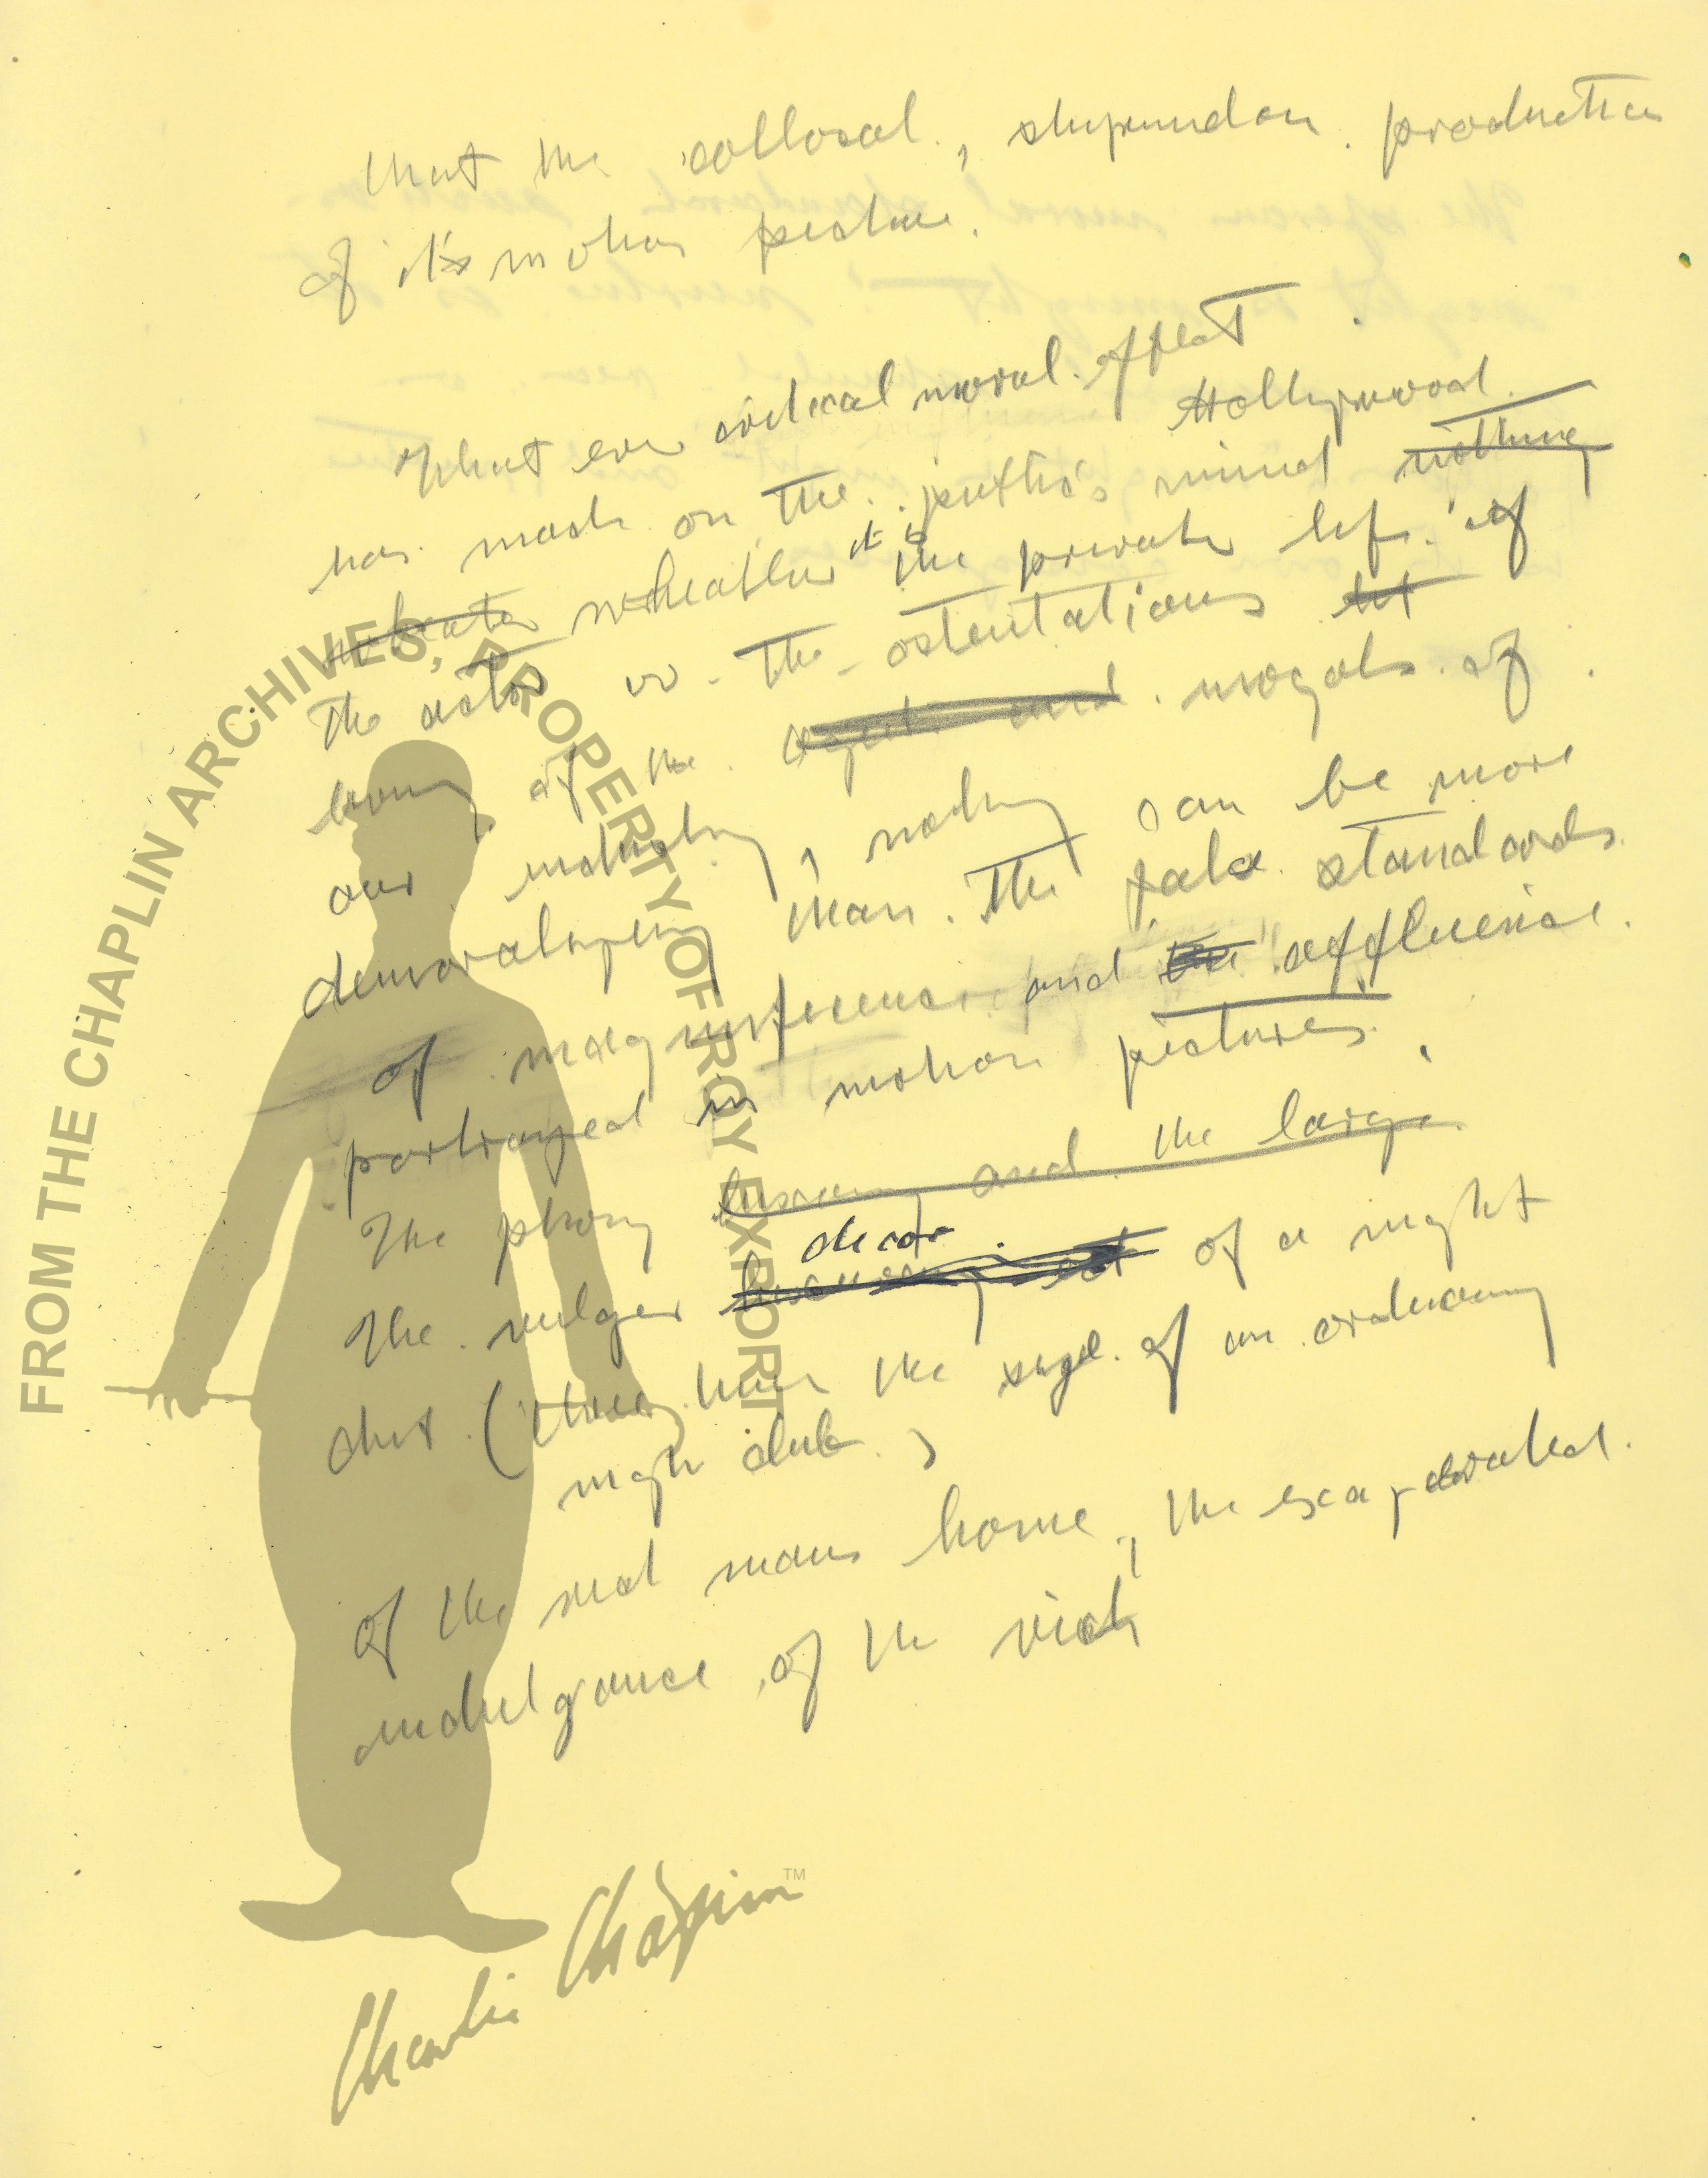 that the collosal, stupendou production
of it's motion picture.
What ever ethical moral effect
Hollywood.
has made on the public's mind nothing
wheather it is the private life of
the actor or the ostentatious
living of the and mogals of
our industry, nothing can be more
demoralizing than the false standards
of magnificence and the affluence.
portrayed in motion pictures.
The phony luxury and the large
decor
The vulger luxury of a night
club (three times the size of an ordinary
night club.)
of the rich mans home, the exagerated
indulgance of the rich
FROM THE CHAPLIN ARCHIVES, PROPERTY OF ROY EXPORT
Charlie Chaplin™